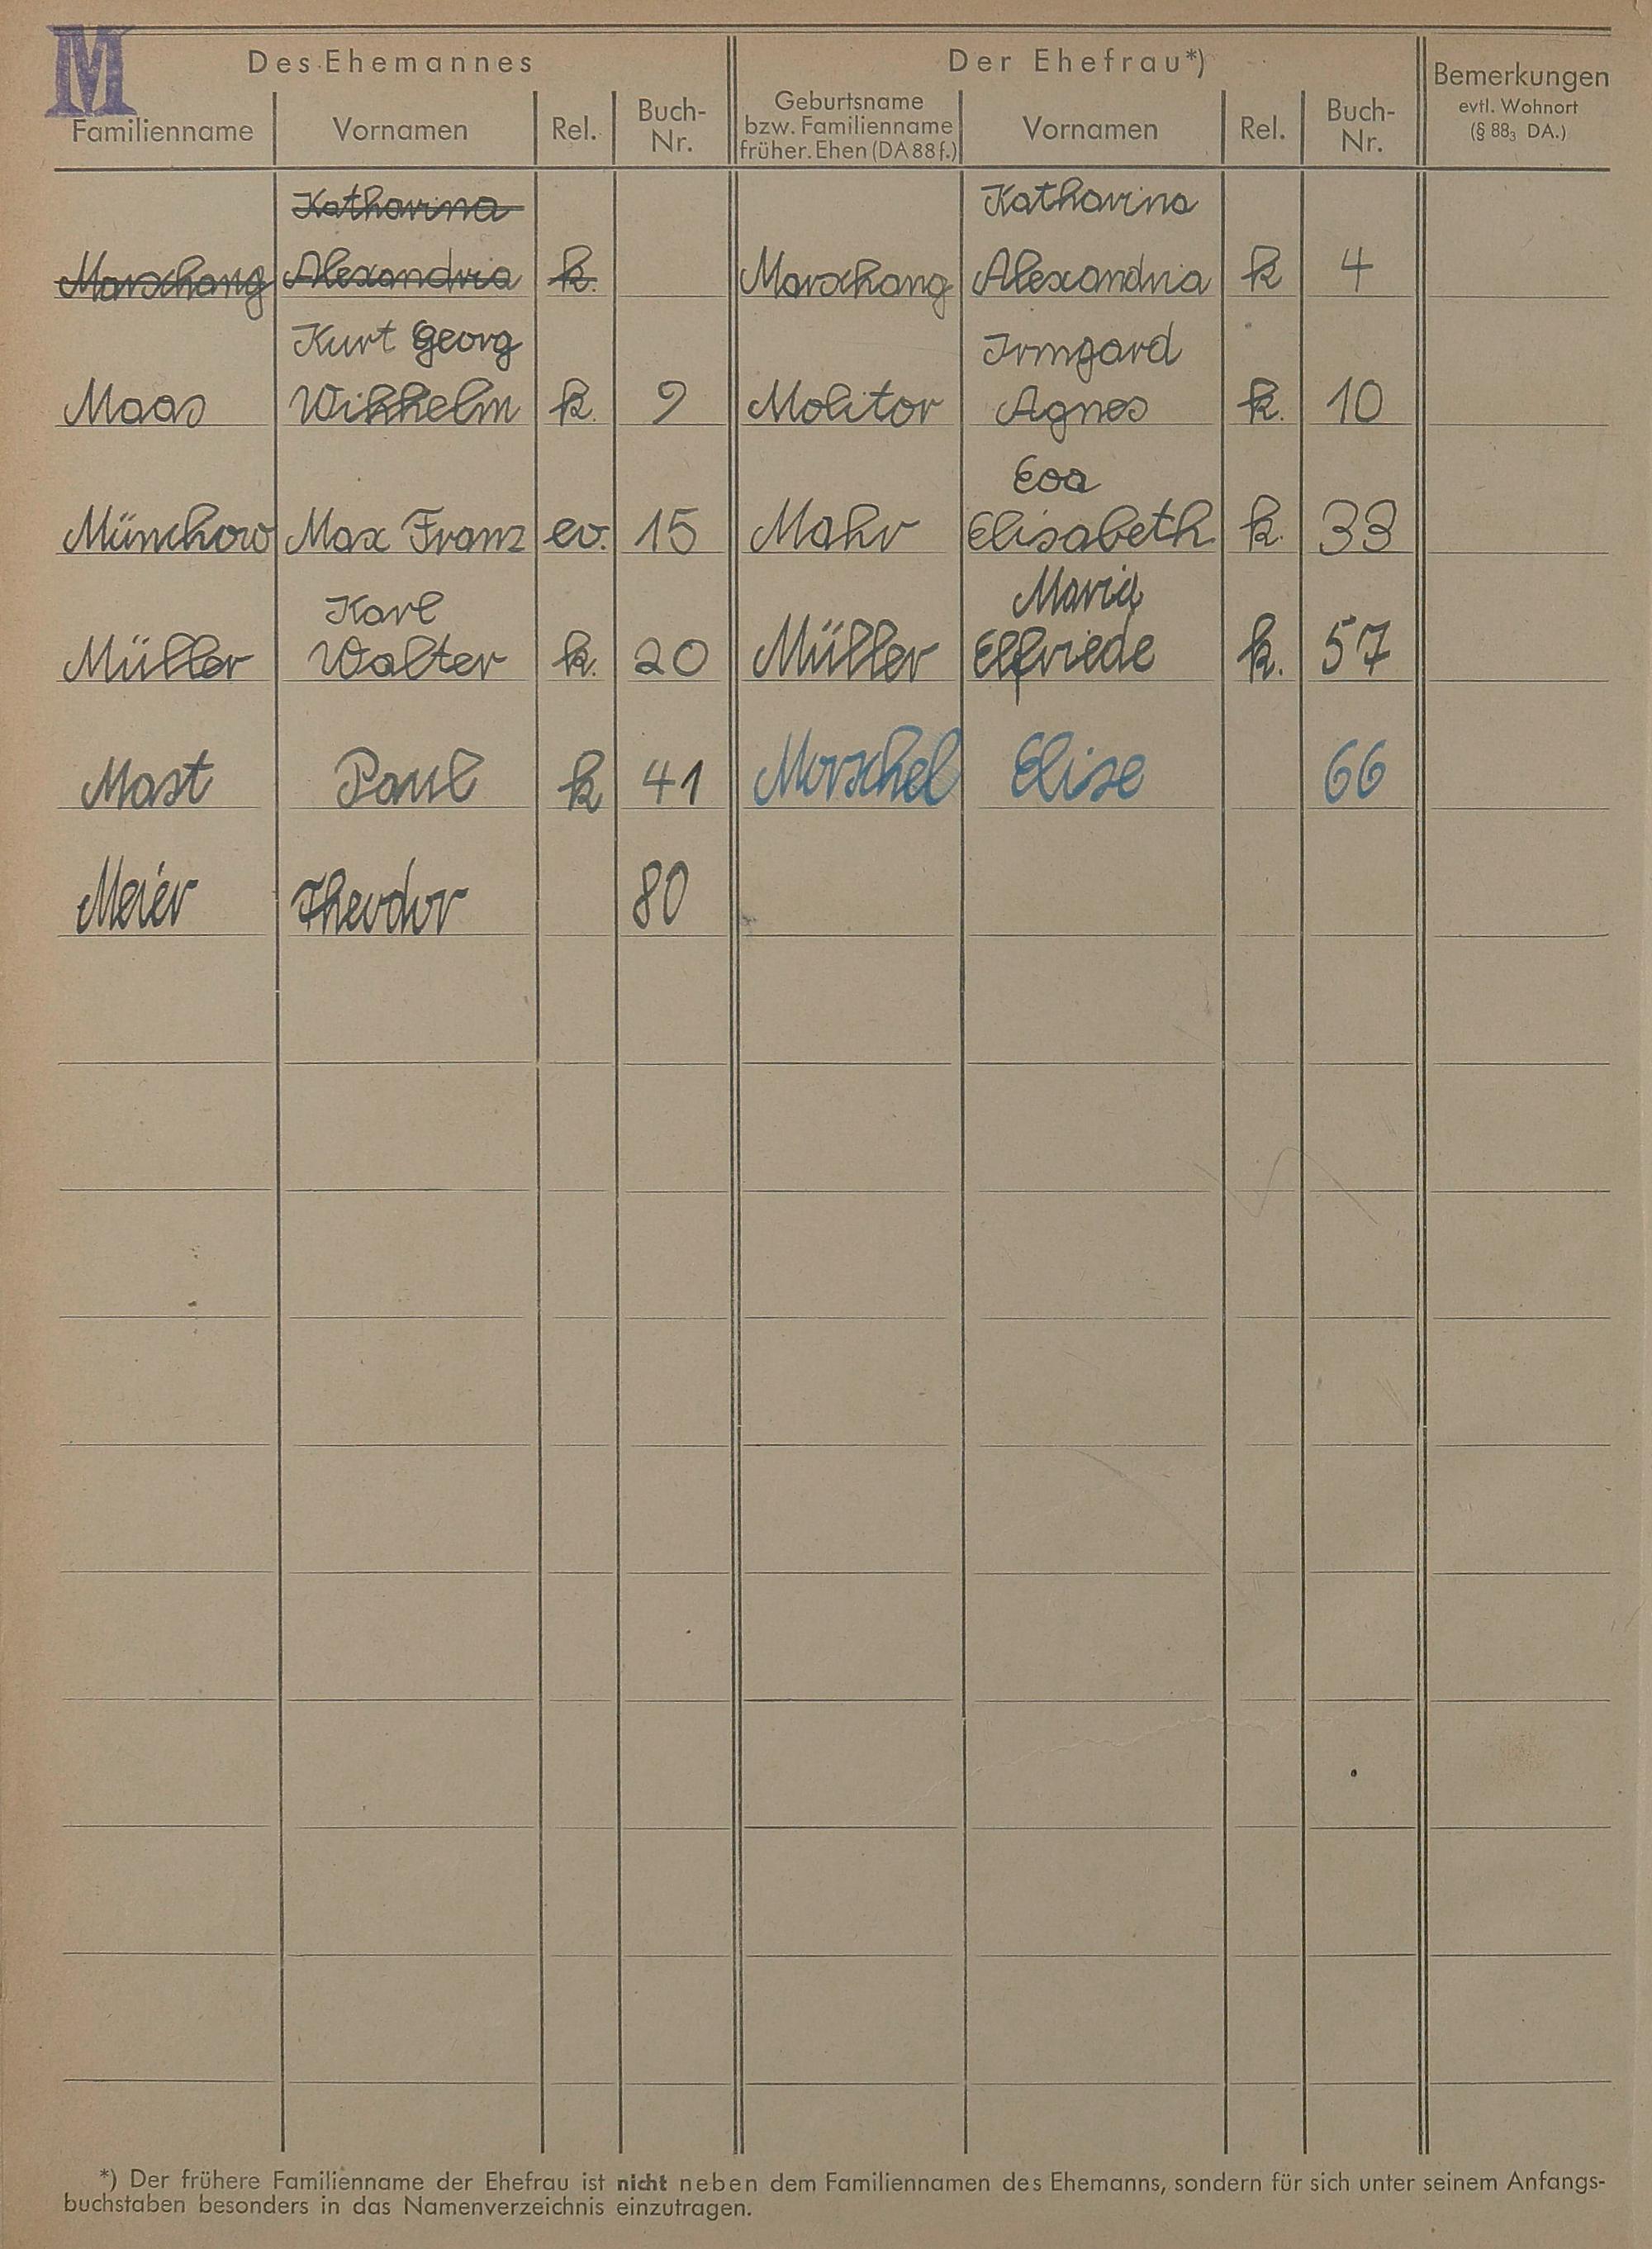 M
Des Ehemannes Der Ehefrau*) Bemerkungen
evtl. Wohnort
(§ 88₃ DA.)
Familienname Vornamen Rel. Buch-Nr. Geburtsname bzw. Familienname früher. Ehen (DA 88 f.) Vornamen Rel. Buch-Nr.
Katharina Katharina
Marschang Alexandria k. Marschang Alexandria k 4
Kurt Georg Irmgard
Maas Wilhelm k. 9 Molitor Agnes k. 10
Eva
Münchow Max Franz ev. 15 Mahr Elisabeth k. 33
Karl Maria
Müller Walter k. 20 Müller Elfriede k. 57
Mast Paul k 41 Morschel Elise 66
Meier Theodor 80
*) Der frühere Familienname der Ehefrau ist nicht neben dem Familiennamen des Ehemanns, sondern für sich unter seinem Anfangs-
buchstaben besonders in das Namenverzeichnis einzutragen.